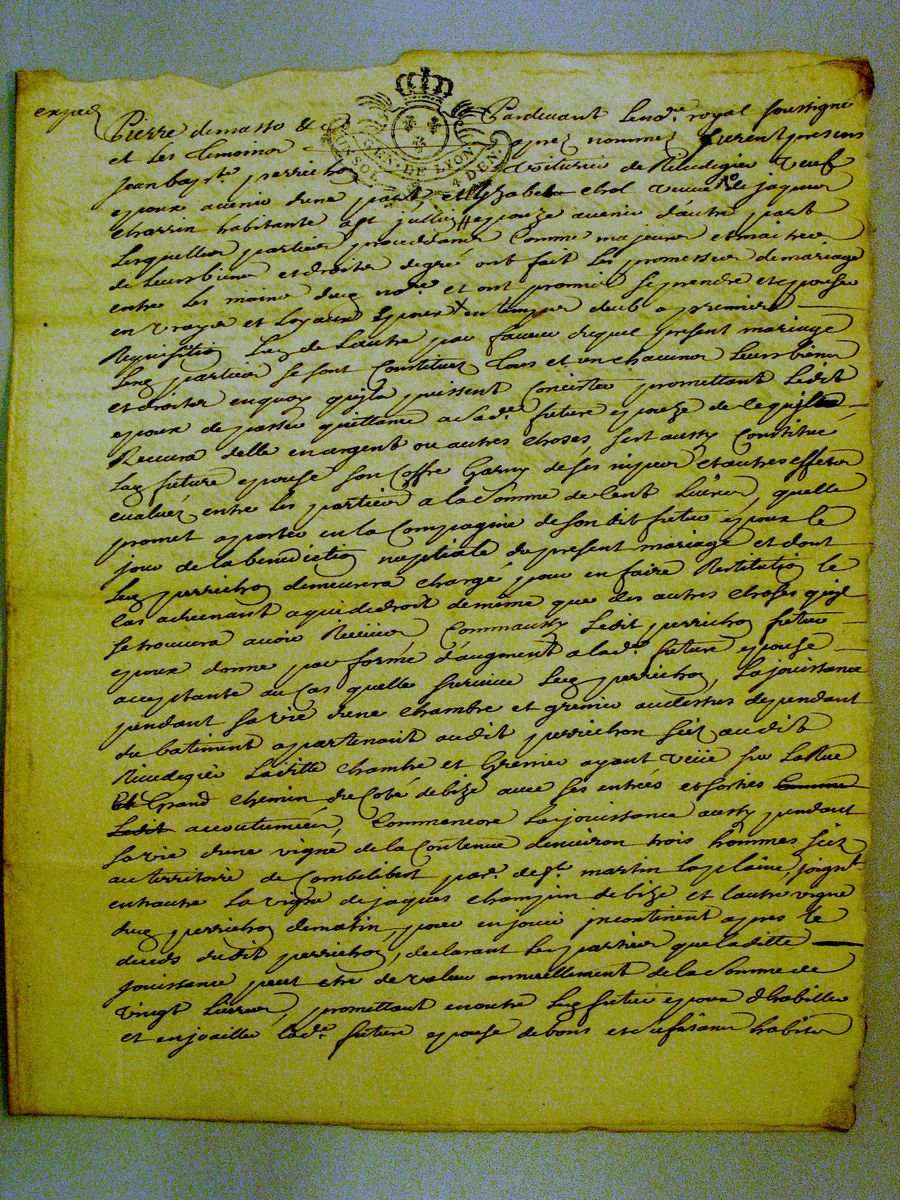 exped
Pardevant le no.re royal soussigné
Pierre demasso &
GEN. DE LYON
UN SOL 4 DEN.
et les temoins apres nommes furent presens
Jean bap.te perrichon voiturier de Rivedegier veuf
epoux avenir dune part et Elizabeth chol veuve de jaques
charrin habitante a st jullien epouze avenir dautre part
Lesquelles parties procedans comme majeures et maitres
de leurs biens et droits degré ont fait les promesses de mariage
entre les mains dud. no.re et ont promis se prendre et epouser
en vrays et loyaux Epoux en temps deub a premiere
Requisition Lun de Lautre par faveur duquel present mariage
Lesd. parties se sont Constitues tous et un chacuns Leurs biens
et droits en quoy quils puissent Concister promettant Ledit
epoux de passer quittance a lad.e future epouze de ce quil
Recevra delle en argent ou autres choses, sest aussy Constitué
Lad. future epouse son Coffre Garny de ses nipes et autres effets
evalués entre les parties a la somme de Cent Livres, quelle
promet aporter en la Compagnie de son dit futur epoux le
jour de la benediction nuptiale du present mariage et dont
Led. perrichon demeurera chargé pour en faire Restitution le
cas advenant a qui de droit de meme que des autres choses quil
se trouvera avoir Reçües Comm'aussy Ledit perrichon futur
epoux donne par forme d'augment a lad.e future epouse
acceptante au Cas quelle survive Led. perrichon, La jouissance
pendant sa vie dune chambre et grenier au dessus dependant
du batiment apartenant audit perrichon sciz audit
Rivedegier Laditte chambre et Grenier ayant veüe sur La Rue
et Grand chemin du Coté de bize avec ses entrées et sorties comme
Ledit accoutumées, Comm'encore La jouissance aussy pendant
sa vie dune vigne de la Contenue denviron trois hommes scize
au territoire de Combelibert par.e de st martin la plaine, joign.t
entrautre La vigne de jaques champin de bize et lautre vigne
dud. perrichon de matin, pour en jouir incontinent apres le
deceds dudit perrichon, declarant les parties que laditte
jouissance peut etre de valeur annuellement de la somme de
vingt Livres, promettant en outre Led. futur epoux d'habiller
et enjoailler lad.e future epouse de bons et suffisans habits